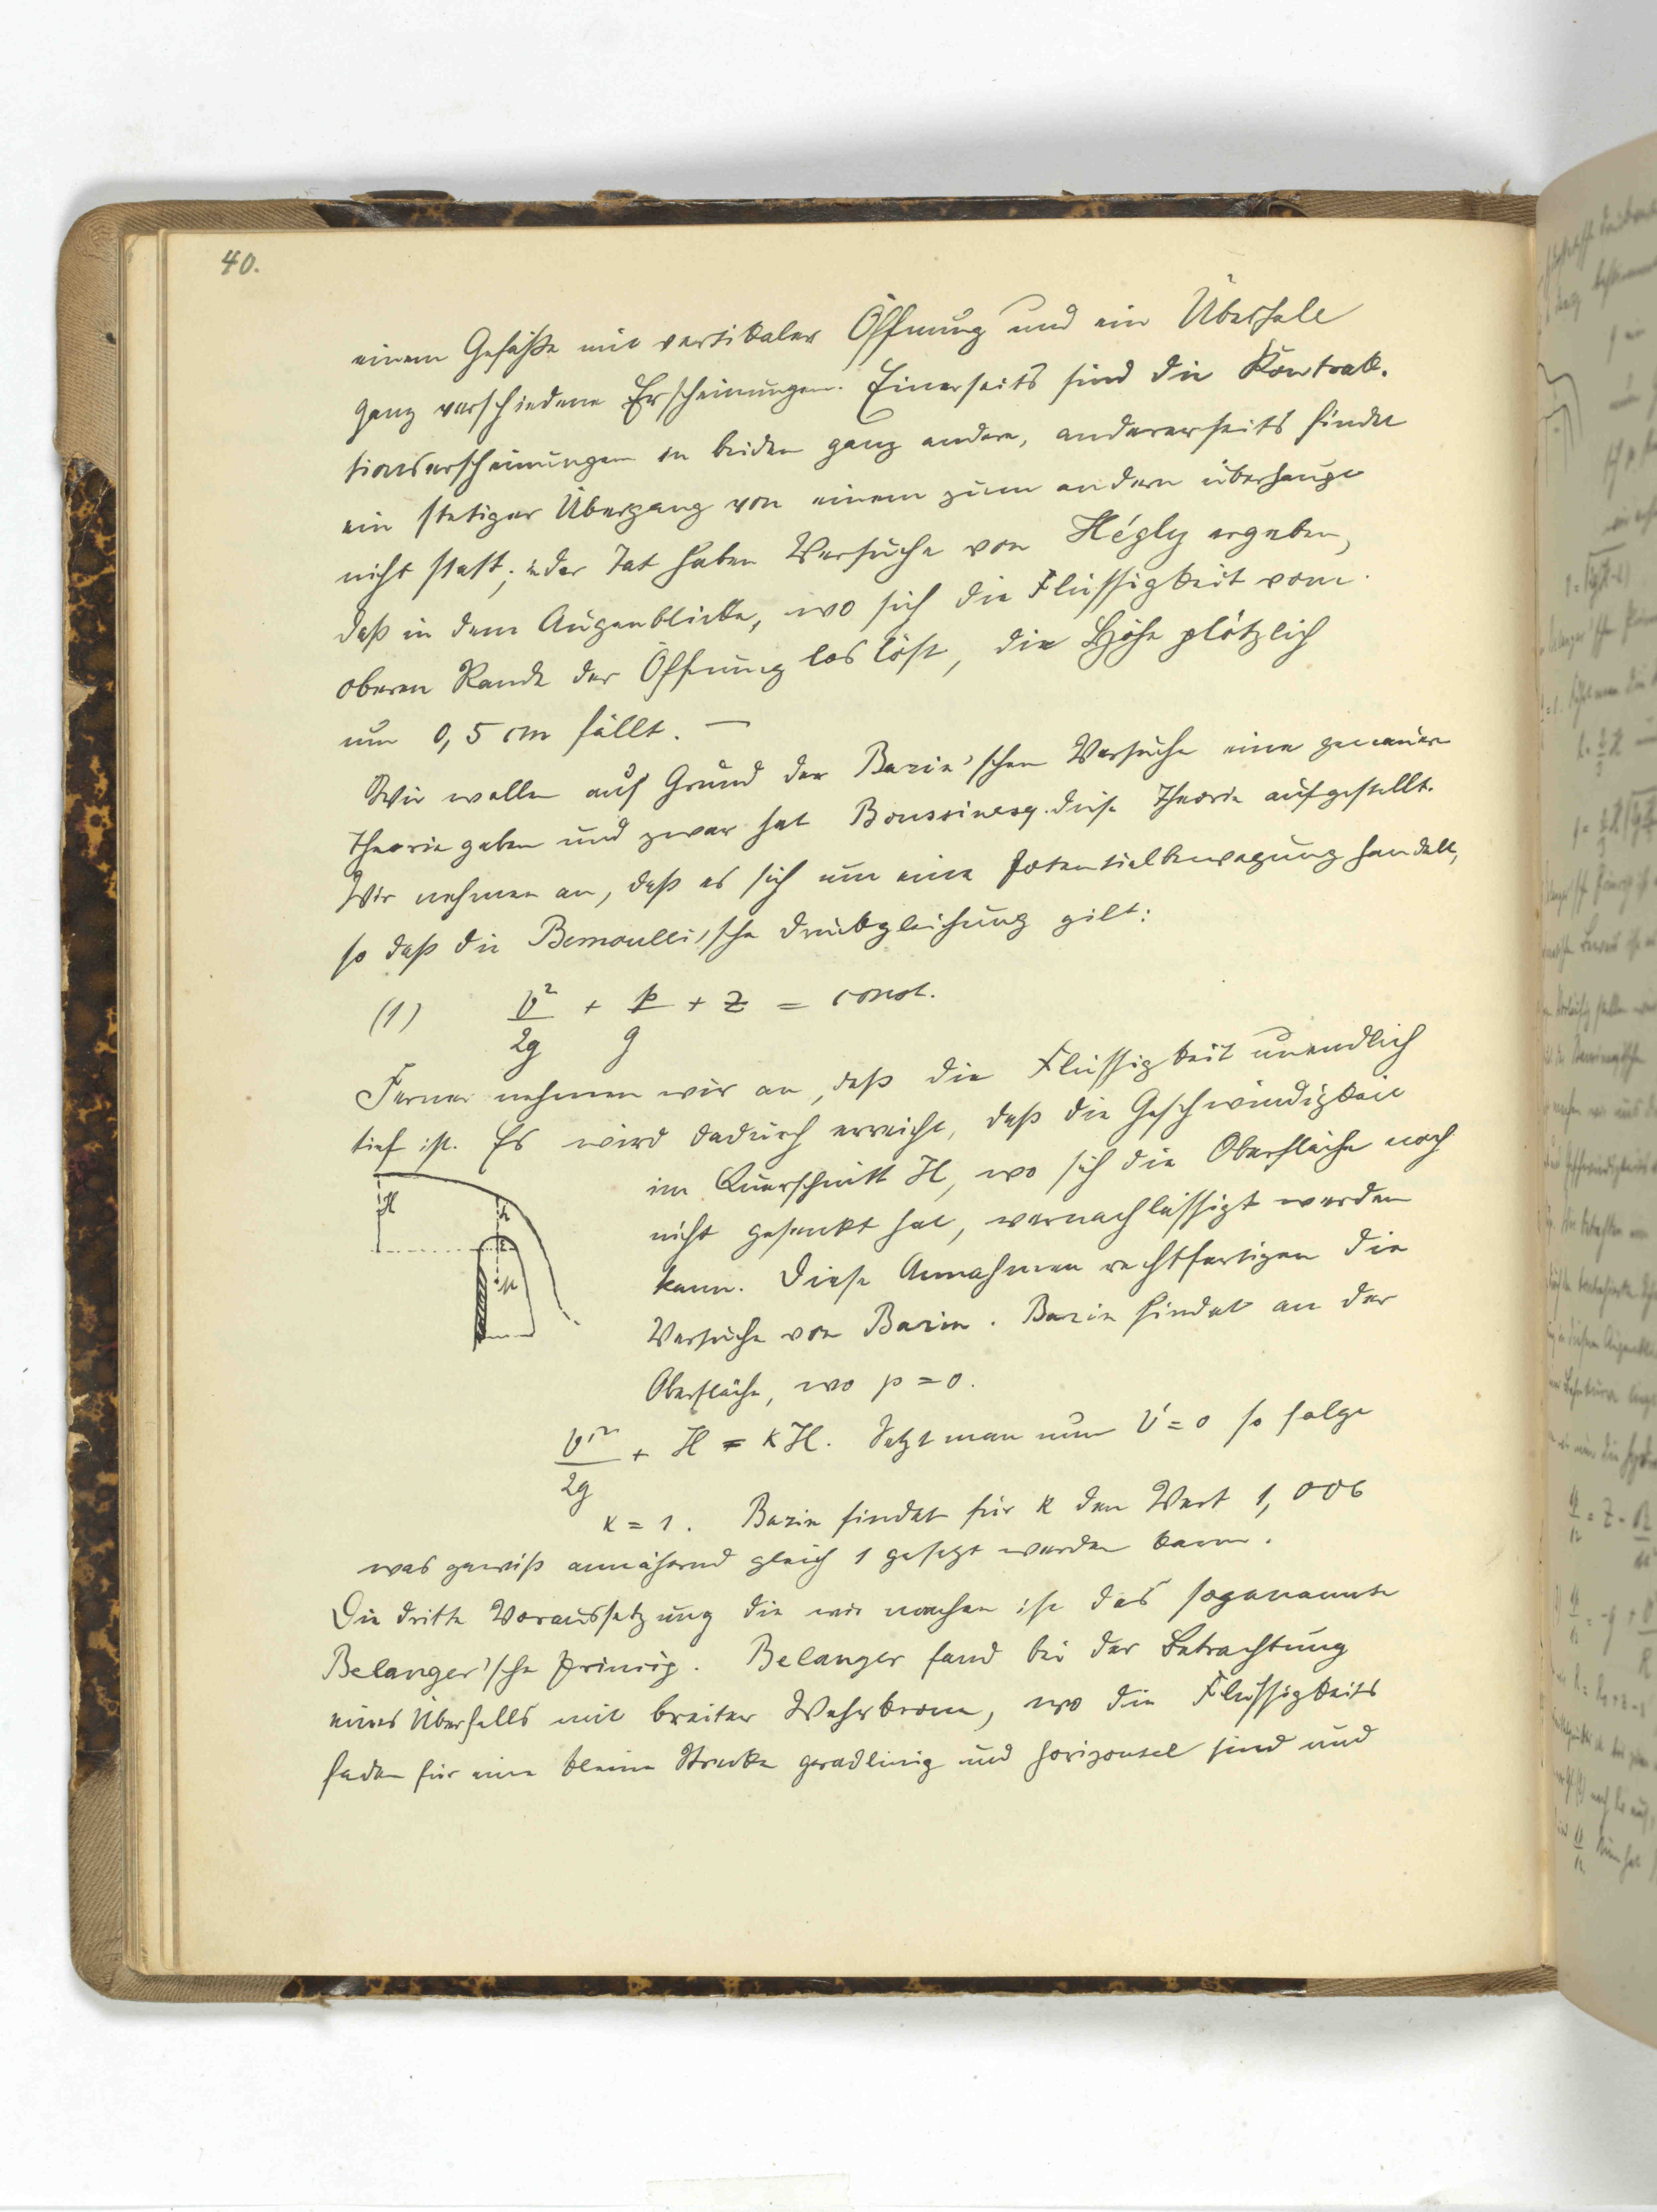 40.
einem Gefäße mit vertikaler Öffnung und ein Überfall
ganz verschiedene Erscheinungen. Einerseits sind die Kontrak-
tionserscheinungen in beiden ganz andere, andererseits findet
ein stetiger Übergang von einem zum andern überhaupt
nicht statt; in der Tat haben Versuche von Hégly ergeben,
daß in dem Augenblicke, wo sich die Flüssigkeit vom
oberen Rande der Öffnung los löst, die Höhe plötzlich
um 0,5 cm fällt. —
Wir wollen auf Grund der Bazin'schen Versuche eine genauere
Theorie geben und zwar hat Boussinesq diese Theorie aufgestellt.
Wir nehmen an, daß es sich um eine Potentialbewegung handelt,
so daß die Bernoulli'sche Druckgleichung gilt:
(1) v²/2g + p/g + z = const.
Ferner nehmen wir an, daß die Flüssigkeit unendlich
tief ist. Es wird dadurch erreicht, daß die Geschwindigkeit
im Querschnitt H, wo sich die Oberfläche noch
nicht gesenkt hat, vernachlässigt werden
kann. Diese Annahmen rechtfertigen die
Versuche von Bazin. Bazin findet an der
Oberfläche, wo p = 0.
H
h
ε
v'²/2g + H = κH. Setzt man nun v' = 0 so folgt
κ = 1. Bazin findet für κ den Wert 1,006
was gewiß annähernd gleich 1 gesetzt werden kann.
Die dritte Voraussetzung die wir machen ist das sogenannte
Belanger'sche Prinzip. Belanger fand bei der Betrachtung
eines Überfalls mit breiter Wehrkrone, wo die Flüssigkeits
faden für eine kleine Strecke geradlinig und horizontal sind und